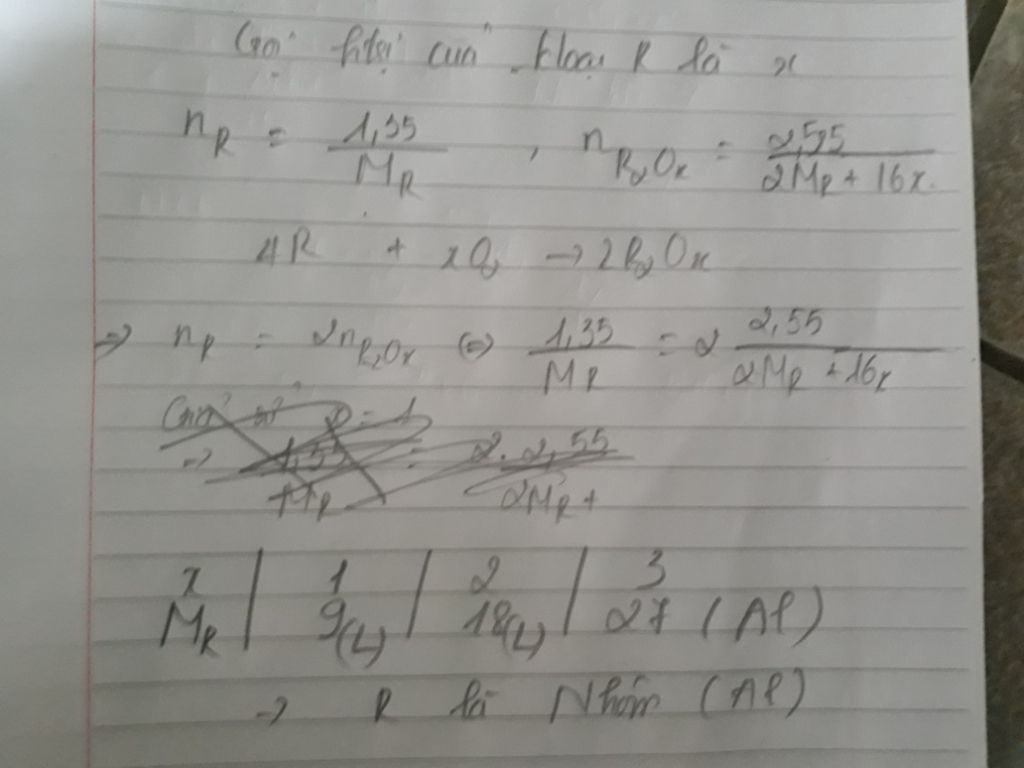 Gọi htrị của kloại R là x
n_R = 1,35 / M_R , n_R₂Oₓ = 2,55 / 2M_R + 16x
4R + xO₂ → 2R₂Oₓ
⇒ n_R = 2n_R₂Oₓ ⇔ 1,35 / M_R = 2 2,55 / 2M_R + 16x
x = 1
⇒ 1,35 / M_R = 2. 2,55 / 2M_R +
x | 1 | 2 | 3
M_R | 9(L) | 18(L) | 27 (Al)
→ R là Nhôm (Al)